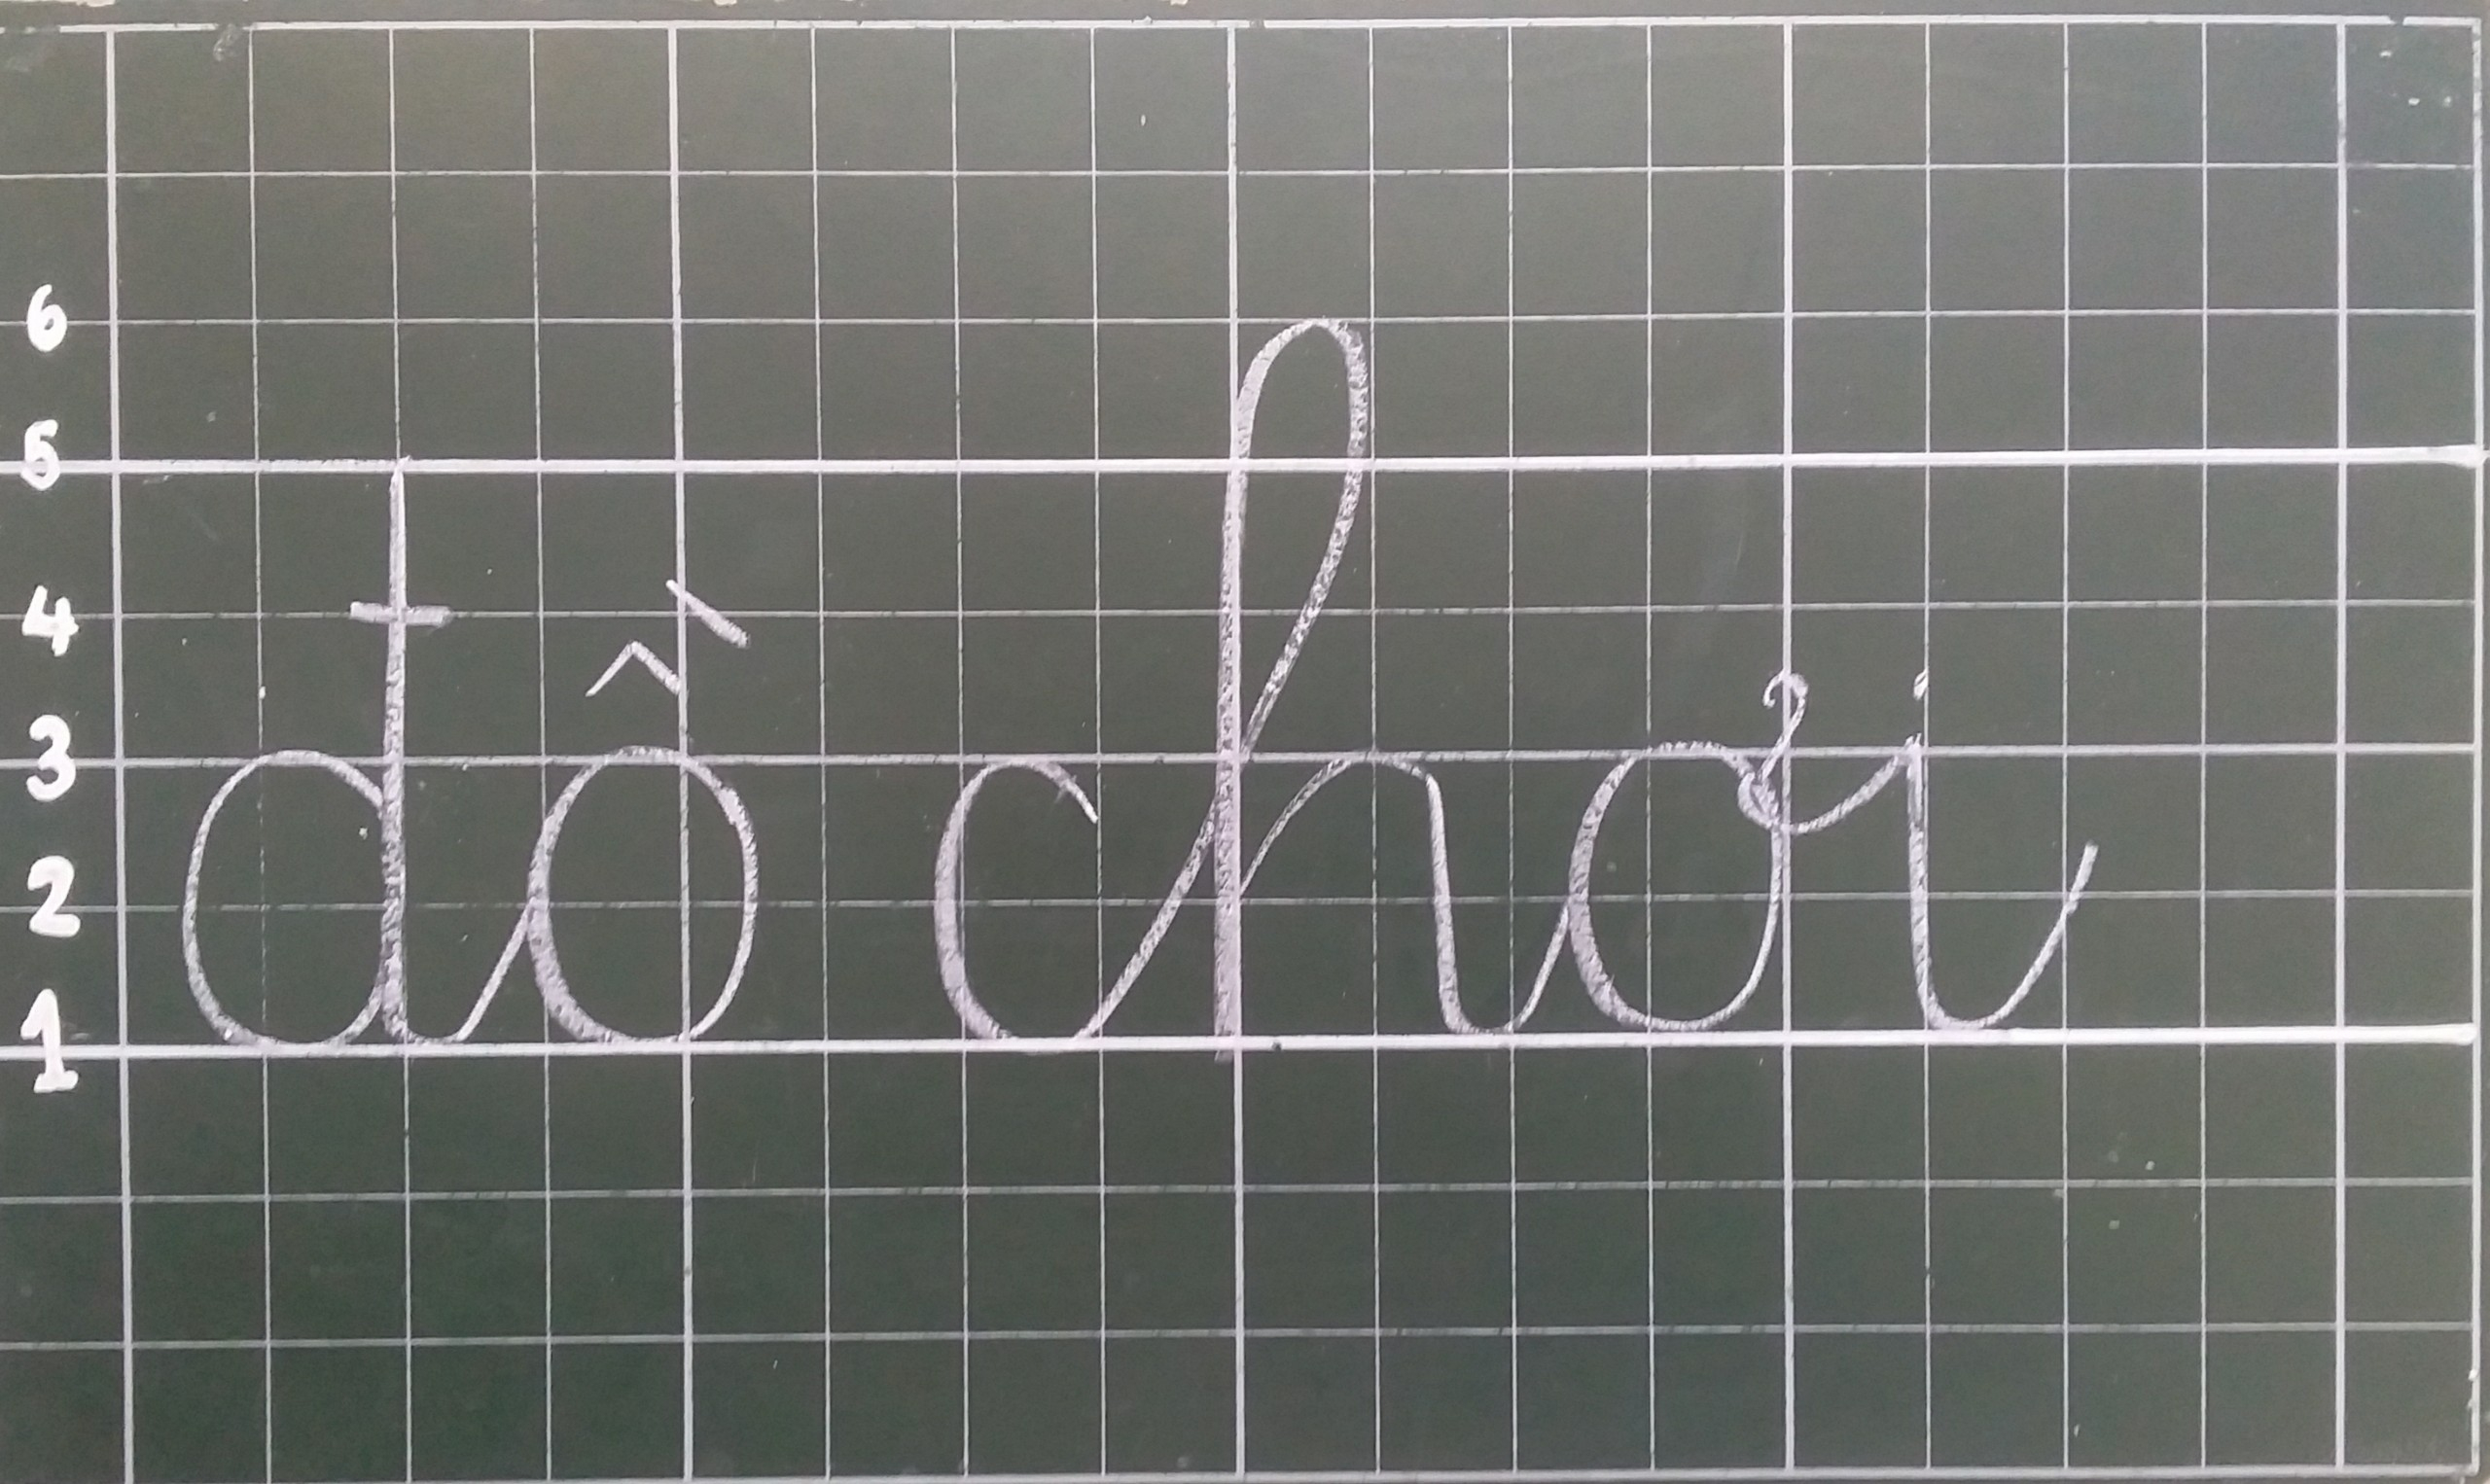 6
5
4
3
2
1
đồ chơi